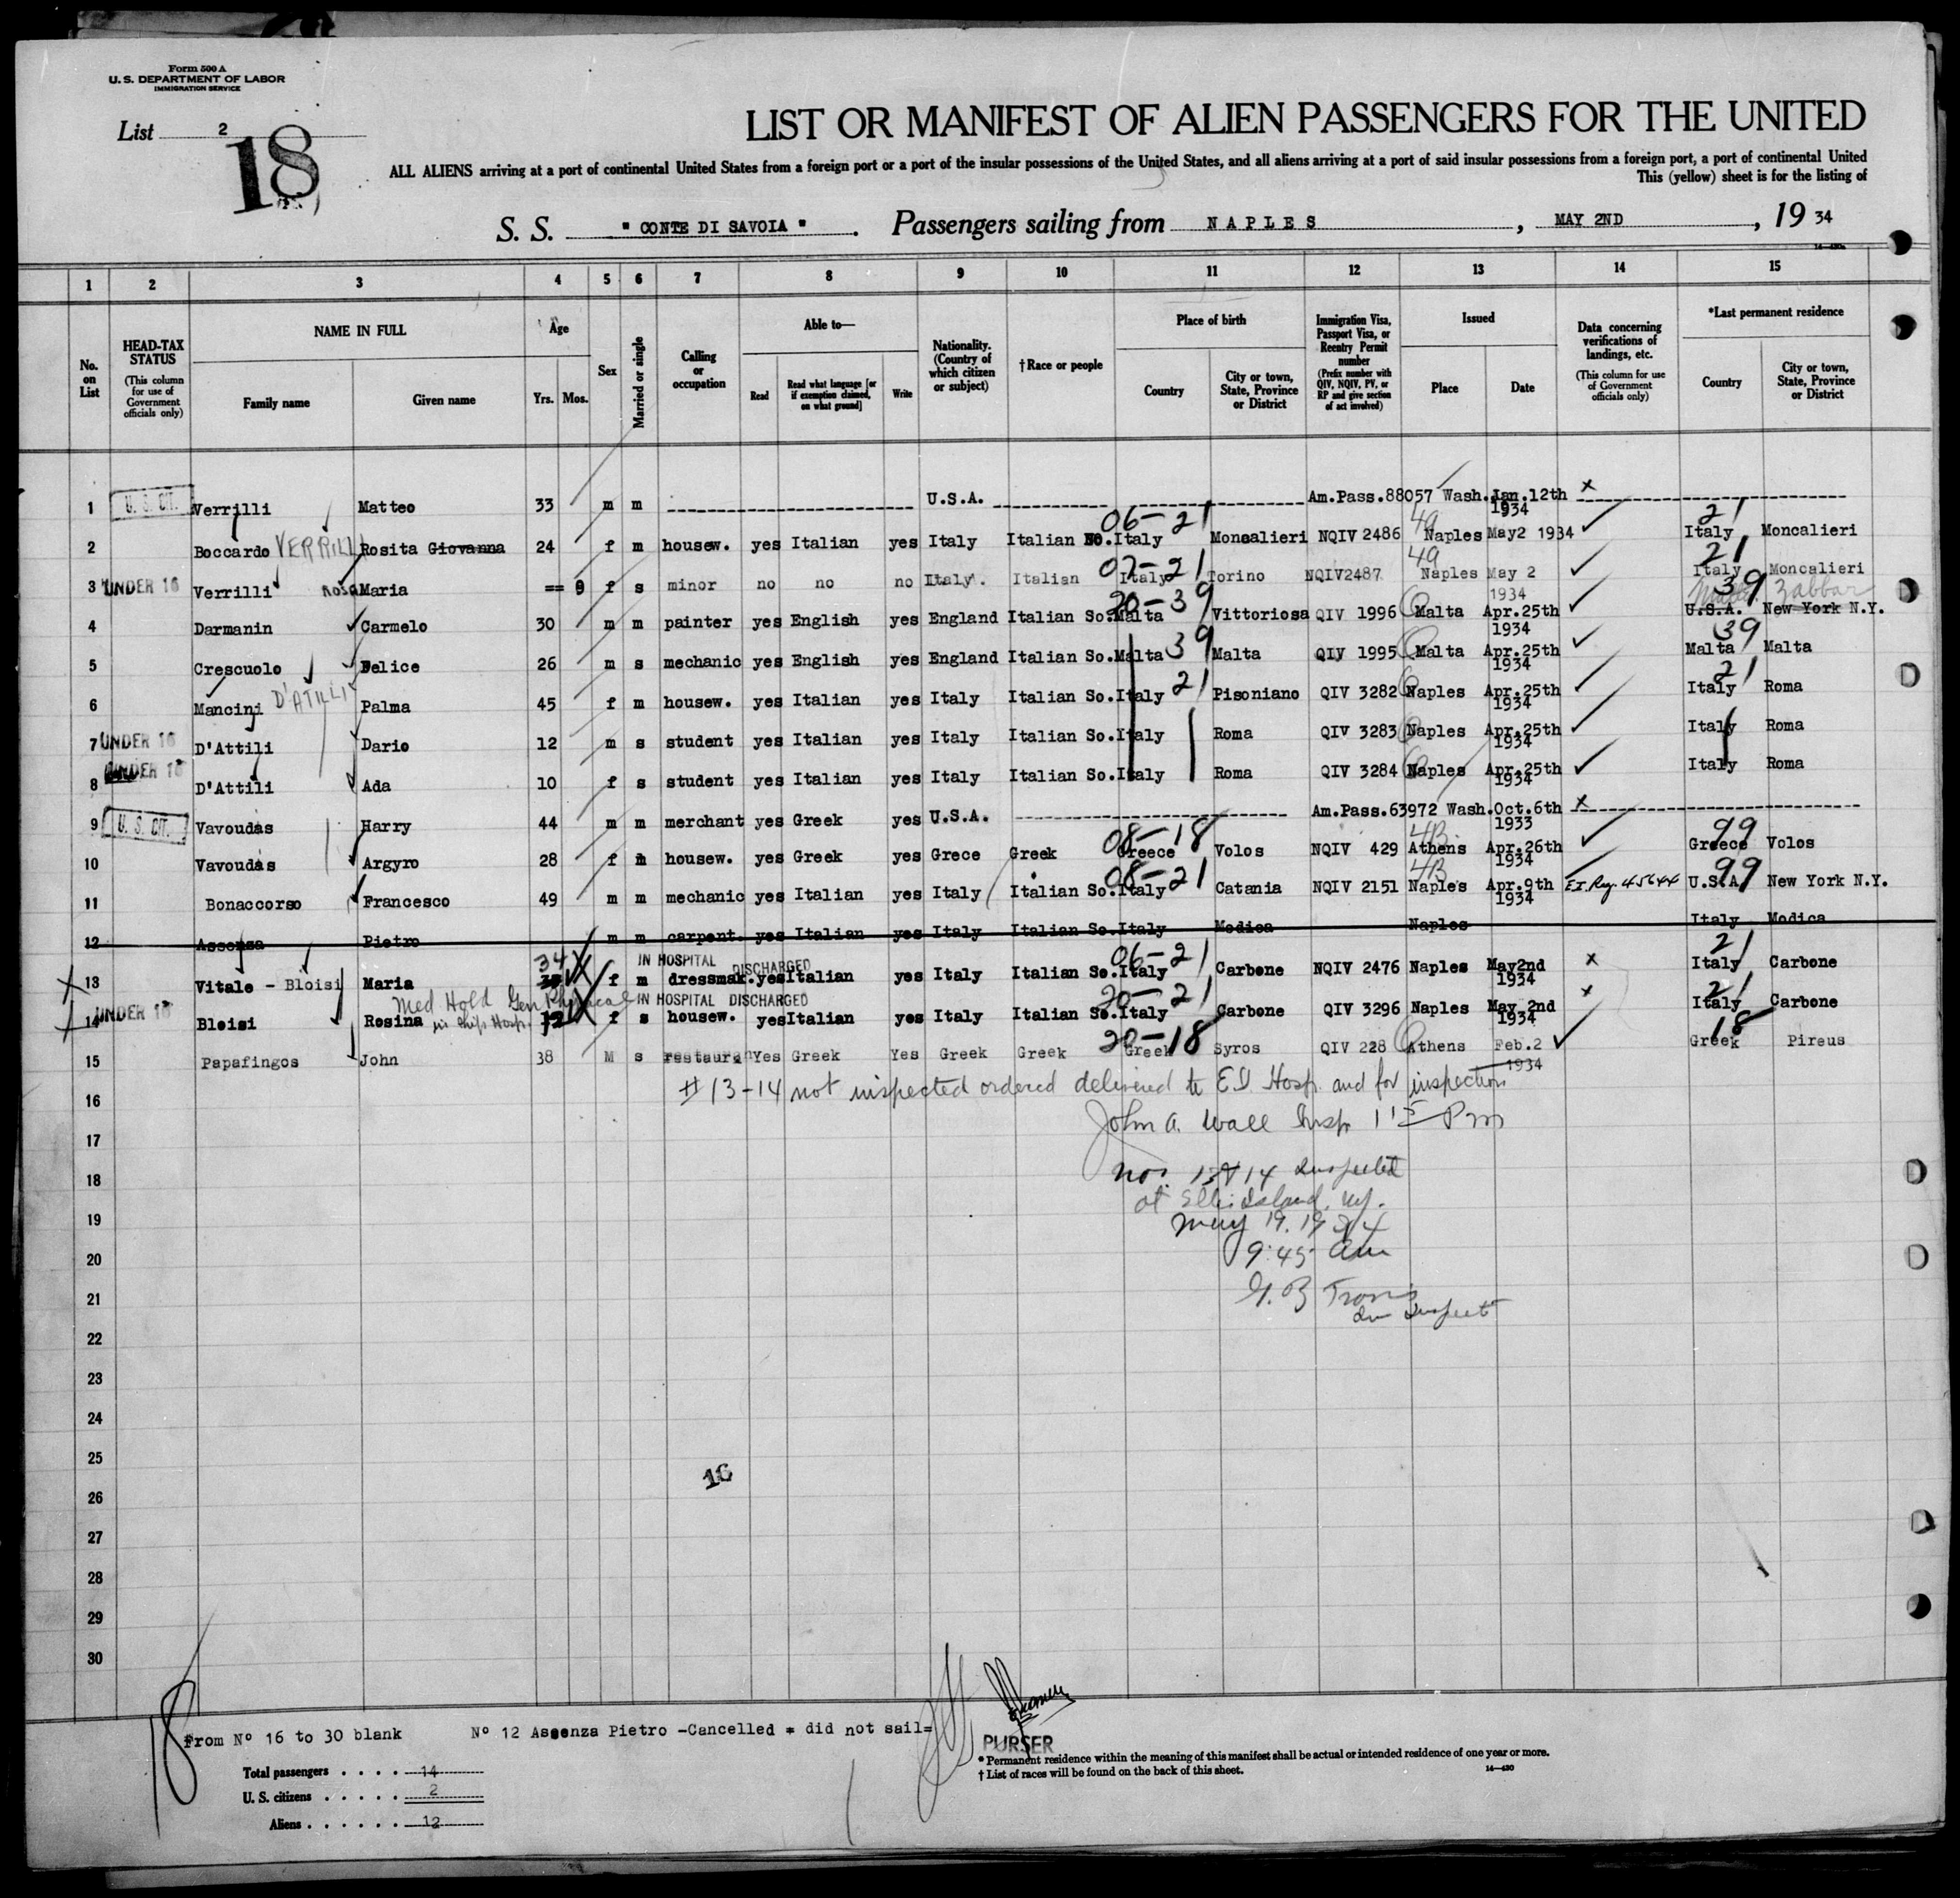 Form 500 A
U. S. DEPARTMENT OF LABOR
IMMIGRATION SERVICE
List 2
18
LIST OR MANIFEST OF ALIEN PASSENGERS FOR THE UNITED
ALL ALIENS arriving at a port of continental United States from a foreign port or a port of the insular possessions of the United States, and all aliens arriving at a port of said insular possessions from a foreign port, a port of continental United
This (yellow) sheet is for the listing of
S. S. " CONTE DI SAVOIA " . Passengers sailing from NAPLES , MAY 2ND , 19 34
1 2 3 4 5 6 7 8 9 10 11 12 13 14 15
No. on List
HEAD-TAX STATUS
(This column for use of Government officials only)
NAME IN FULL
Family name Given name
Age
Yrs. Mos.
Sex
Married or single
Calling or occupation
Able to—
Read Read what language [or if exemption claimed, on what ground] Write
Nationality. (Country of which citizen or subject)
† Race or people
Place of birth
Country City or town, State, Province or District
Immigration Visa, Passport Visa, or Reentry Permit number
(Prefix number with QIV, NQIV, PV, or RP and give section of act involved)
Issued
Place Date
Data concerning verifications of landings, etc.
(This column for use of Government officials only)
*Last permanent residence
Country City or town, State, Province or District
1 U. S. CIT. Verrilli Matteo 33 m m U.S.A. Am.Pass.88057 Wash. Jan.12th 1934 x
06-21 4a 21
2 Boccardo VERRILLI Rosita Giovanna 24 f m housew. yes Italian yes Italy Italian No. Italy Moncalieri NQIV 2486 Naples May2 1934 Italy Moncalieri
07-21 4a 21
3 UNDER 16 Verrilli Rosa Maria == 9 f s minor no no no Italy. Italian Italy Torino NQIV2487 Naples May 2 1934 Italy Moncalieri
20-39 39 Malta Zabbar
4 Darmanin Carmelo 30 m m painter yes English yes England Italian So. Malta Vittoriosa QIV 1996 Malta Apr.25th 1934 U.S.A. New York N.Y.
39 39
5 Crescuolo Felice 26 m s mechanic yes English yes England Italian So. Malta Malta QIV 1995 Malta Apr.25th 1934 Malta Malta
21 21
6 Mancini D'ATILLI Palma 45 f m housew. yes Italian yes Italy Italian So. Italy Pisoniano QIV 3282 Naples Apr.25th 1934 Italy Roma
7 UNDER 16 D'Attili Dario 12 m s student yes Italian yes Italy Italian So. Italy Roma QIV 3283 Naples Apr.25th 1934 Italy Roma
8 UNDER 16 D'Attili Ada 10 f s student yes Italian yes Italy Italian So. Italy Roma QIV 3284 Naples Apr.25th 1934 Italy Roma
9 U. S. CIT. Vavoudas Harry 44 m m merchant yes Greek yes U.S.A. Am.Pass.63972 Wash. Oct.6th 1933 x
08-18 4B 99
10 Vavoudas Argyro 28 f m housew. yes Greek yes Grece Greek Greece Volos NQIV 429 Athens Apr.26th 1934 Greece Volos
08-21 4B 99
11 Bonaccorso Francesco 49 m m mechanic yes Italian yes Italy Italian So. Italy Catania NQIV 2151 Naples Apr.9th 1934 E.I. Reg. 45644 U.S.A. New York N.Y.
12 Assenza Pietro m m carpent. yes Italian yes Italy Italian So. Italy Modica Naples Italy Modica
34 IN HOSPITAL DISCHARGED 06-21 21
13 Vitale - Bloisi Maria f m dressmak. yes Italian yes Italy Italian So. Italy Carbone NQIV 2476 Naples May2nd 1934 x Italy Carbone
Med Hold Gen Physical in Ships Hosp. IN HOSPITAL DISCHARGED 20-21 21
14 UNDER 16 Bloisi Rosina 12 f s housew. yes Italian yes Italy Italian So. Italy Carbone QIV 3296 Naples May 2nd 1934 x Italy Carbone
20-18 18
15 Papafingos John 38 M s restauran Yes Greek Yes Greek Greek Greek Syros QIV 228 Athens Feb.2 1934 Greek Pireus
# 13-14 not inspected ordered delivered to E.I. Hosp. and for inspection
16
John A. Wall Insp. 1 15 Pm
17
nos. 13 & 14 Inspected
18
at Ellis Island, NY.
19
May 19, 1934
20
9:45 am
21
22
23
24
25
16
26
27
28
29
30
18
From Nº 16 to 30 blank Nº 12 Assenza Pietro -Cancelled = did not sail=
PURSER
Total passengers . . . . 14
U. S. citizens . . . . . 2
Aliens . . . . . . 12
* Permanent residence within the meaning of this manifest shall be actual or intended residence of one year or more.
† List of races will be found on the back of this sheet.
14—430